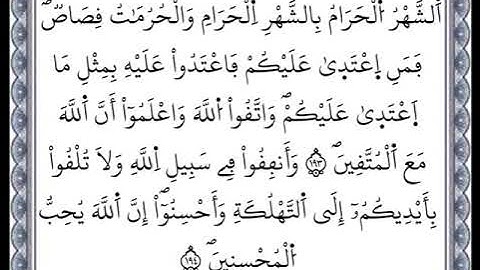 اَ۬لشَّهْرُ اُ۬لْحَرَامُ بِالشَّهْرِ اِ۬لْحَرَامِ وَالْحُرُمَٰتُ قِصَاصٞۖ
فَمَنِ اِ۪عْتَد۪يٰ عَلَيْكُمْ فَاعْتَدُواْ عَلَيْهِ بِمِثْلِ مَا
اَ۪عْتَد۪يٰ عَلَيْكُمْۖ وَاتَّقُواْ اُ۬للَّهَ وَاعْلَمُوٓاْ أَنَّ اَ۬للَّهَ
مَعَ اَ۬لْمُتَّقِينَۖ ١٩٣ وَأَنفِقُواْ فِے سَبِيلِ اِ۬للَّهِ وَلَا تُلْقُواْ
بِأَيْدِيكُمُۥٓ إِلَى اَ۬لتَّهْلُكَةِ وَأَحْسِنُوٓاْۖ إِنَّ اَ۬للَّهَ يُحِبُّ
اُ۬لْمُحْسِنِينَۖ ١٩٤